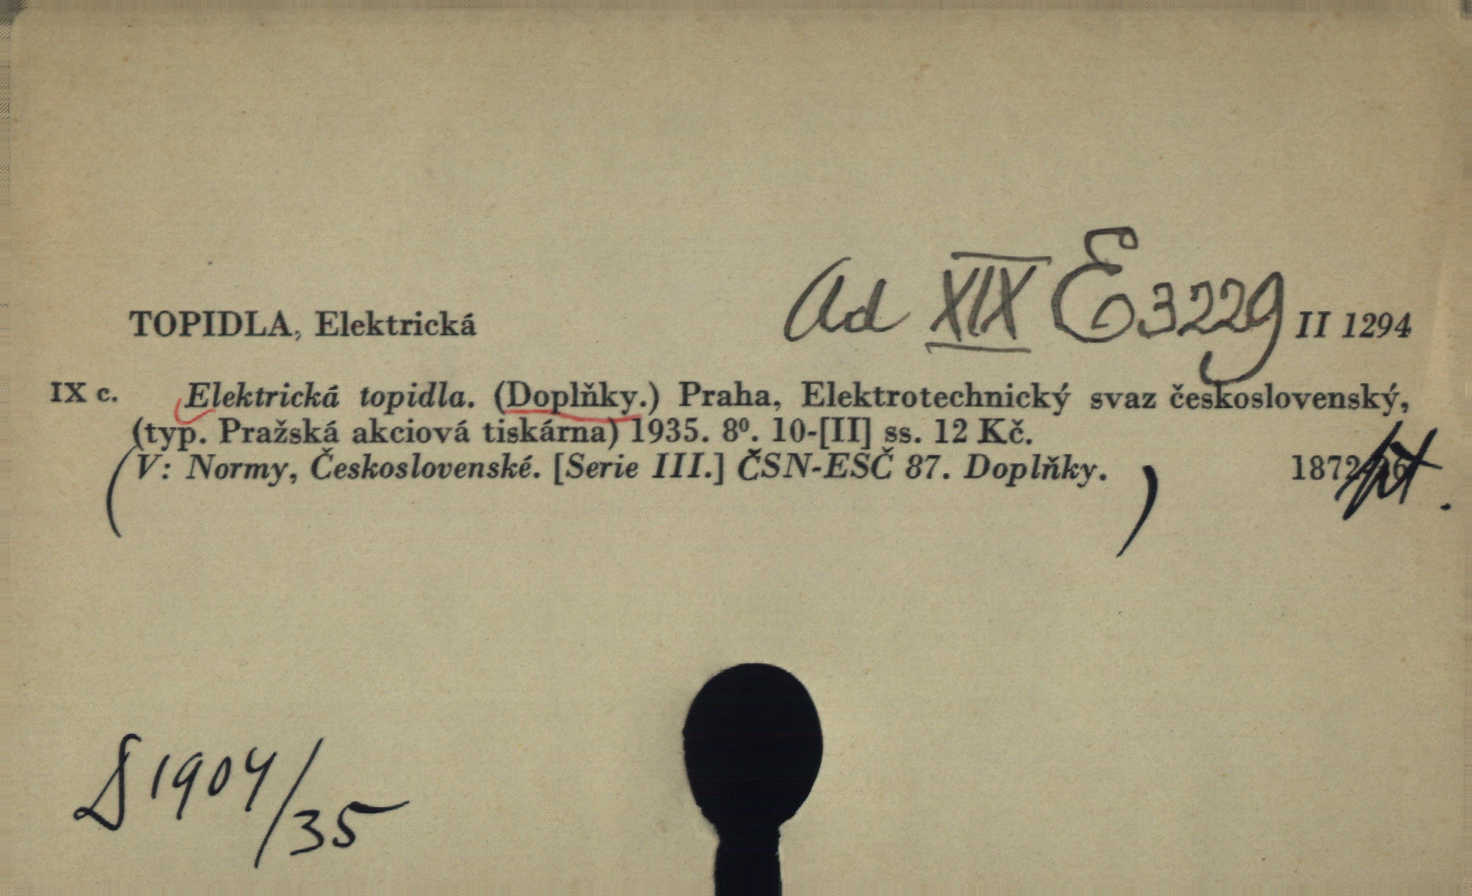 Ad XIX E 3229
TOPIDLA, Elektrická II 1294
IX c. Elektrická topidla. (Doplňky.) Praha, Elektrotechnický svaz československý,
(typ. Pražská akciová tiskárna) 1935. 8⁰. 10-[II] ss. 12 Kč.
(V: Normy, Československé. [Serie III.] ČSN-ESČ 87. Doplňky.) 1872
S 1904/35